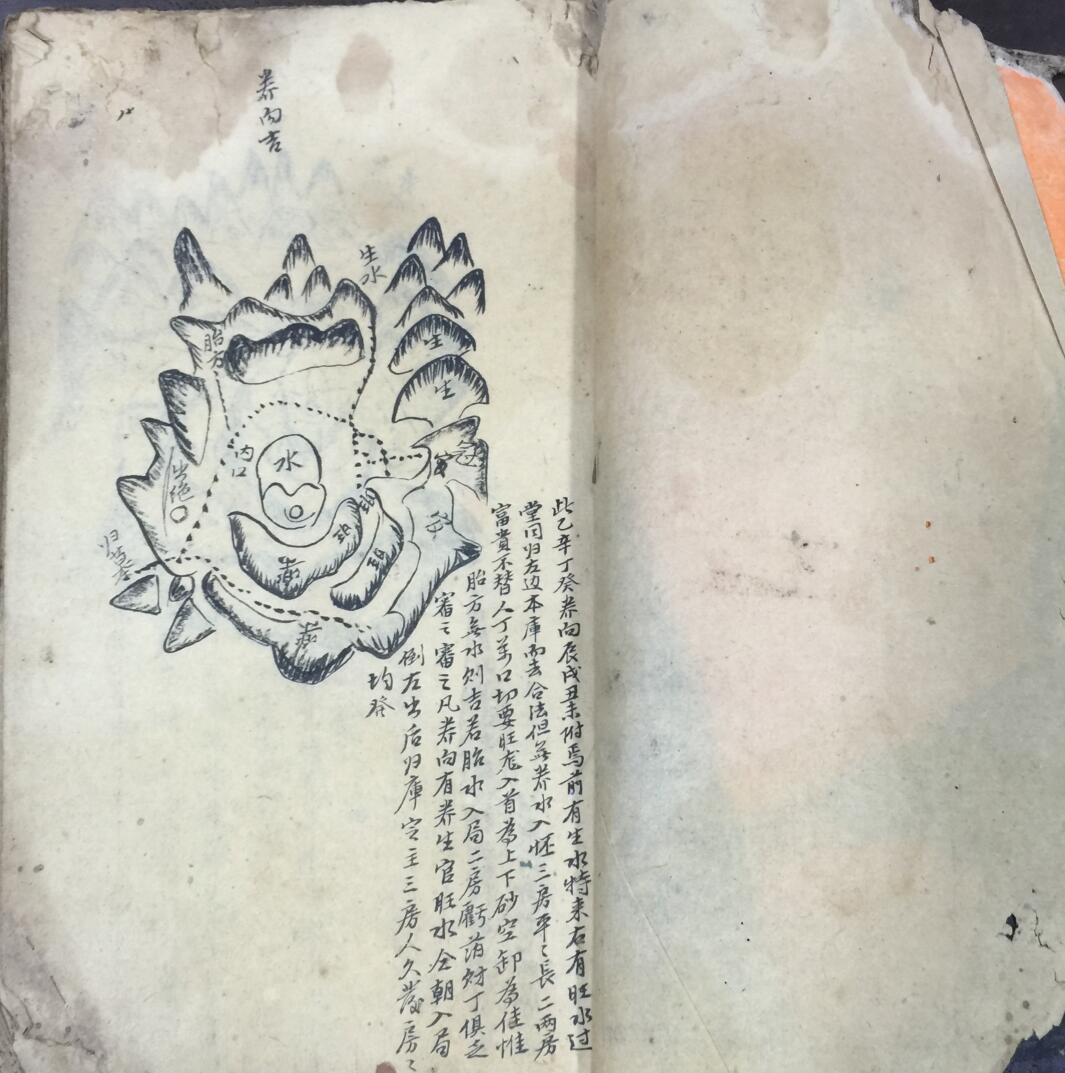 养向吉
生水
胎方
生
生
内口
水
出绝
归墓
病
病
此乙辛丁癸养向辰戌丑未附焉前有生水特来右有旺水过
堂同归左边本庫而去合法但無养水入怀三房平〻長二两房
富貴不替人丁万口切要旺龙入首為上下砂空卸為佳惟
胎方無水则吉若胎水入局二房虧落财丁俱乏
審之審之凡养向有养生官旺水全朝入局
倒左出后归庫定主三房人久發房〻
均發